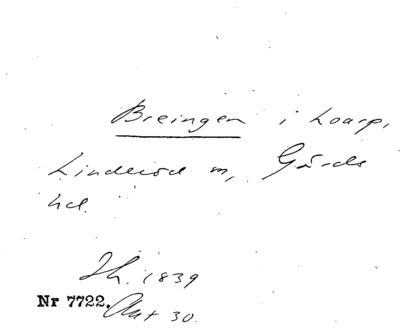 Breingen i Loarp,
Linderöd sn, Gärds
hd.
Jh. 1839
Nr 7722. Akt 30.